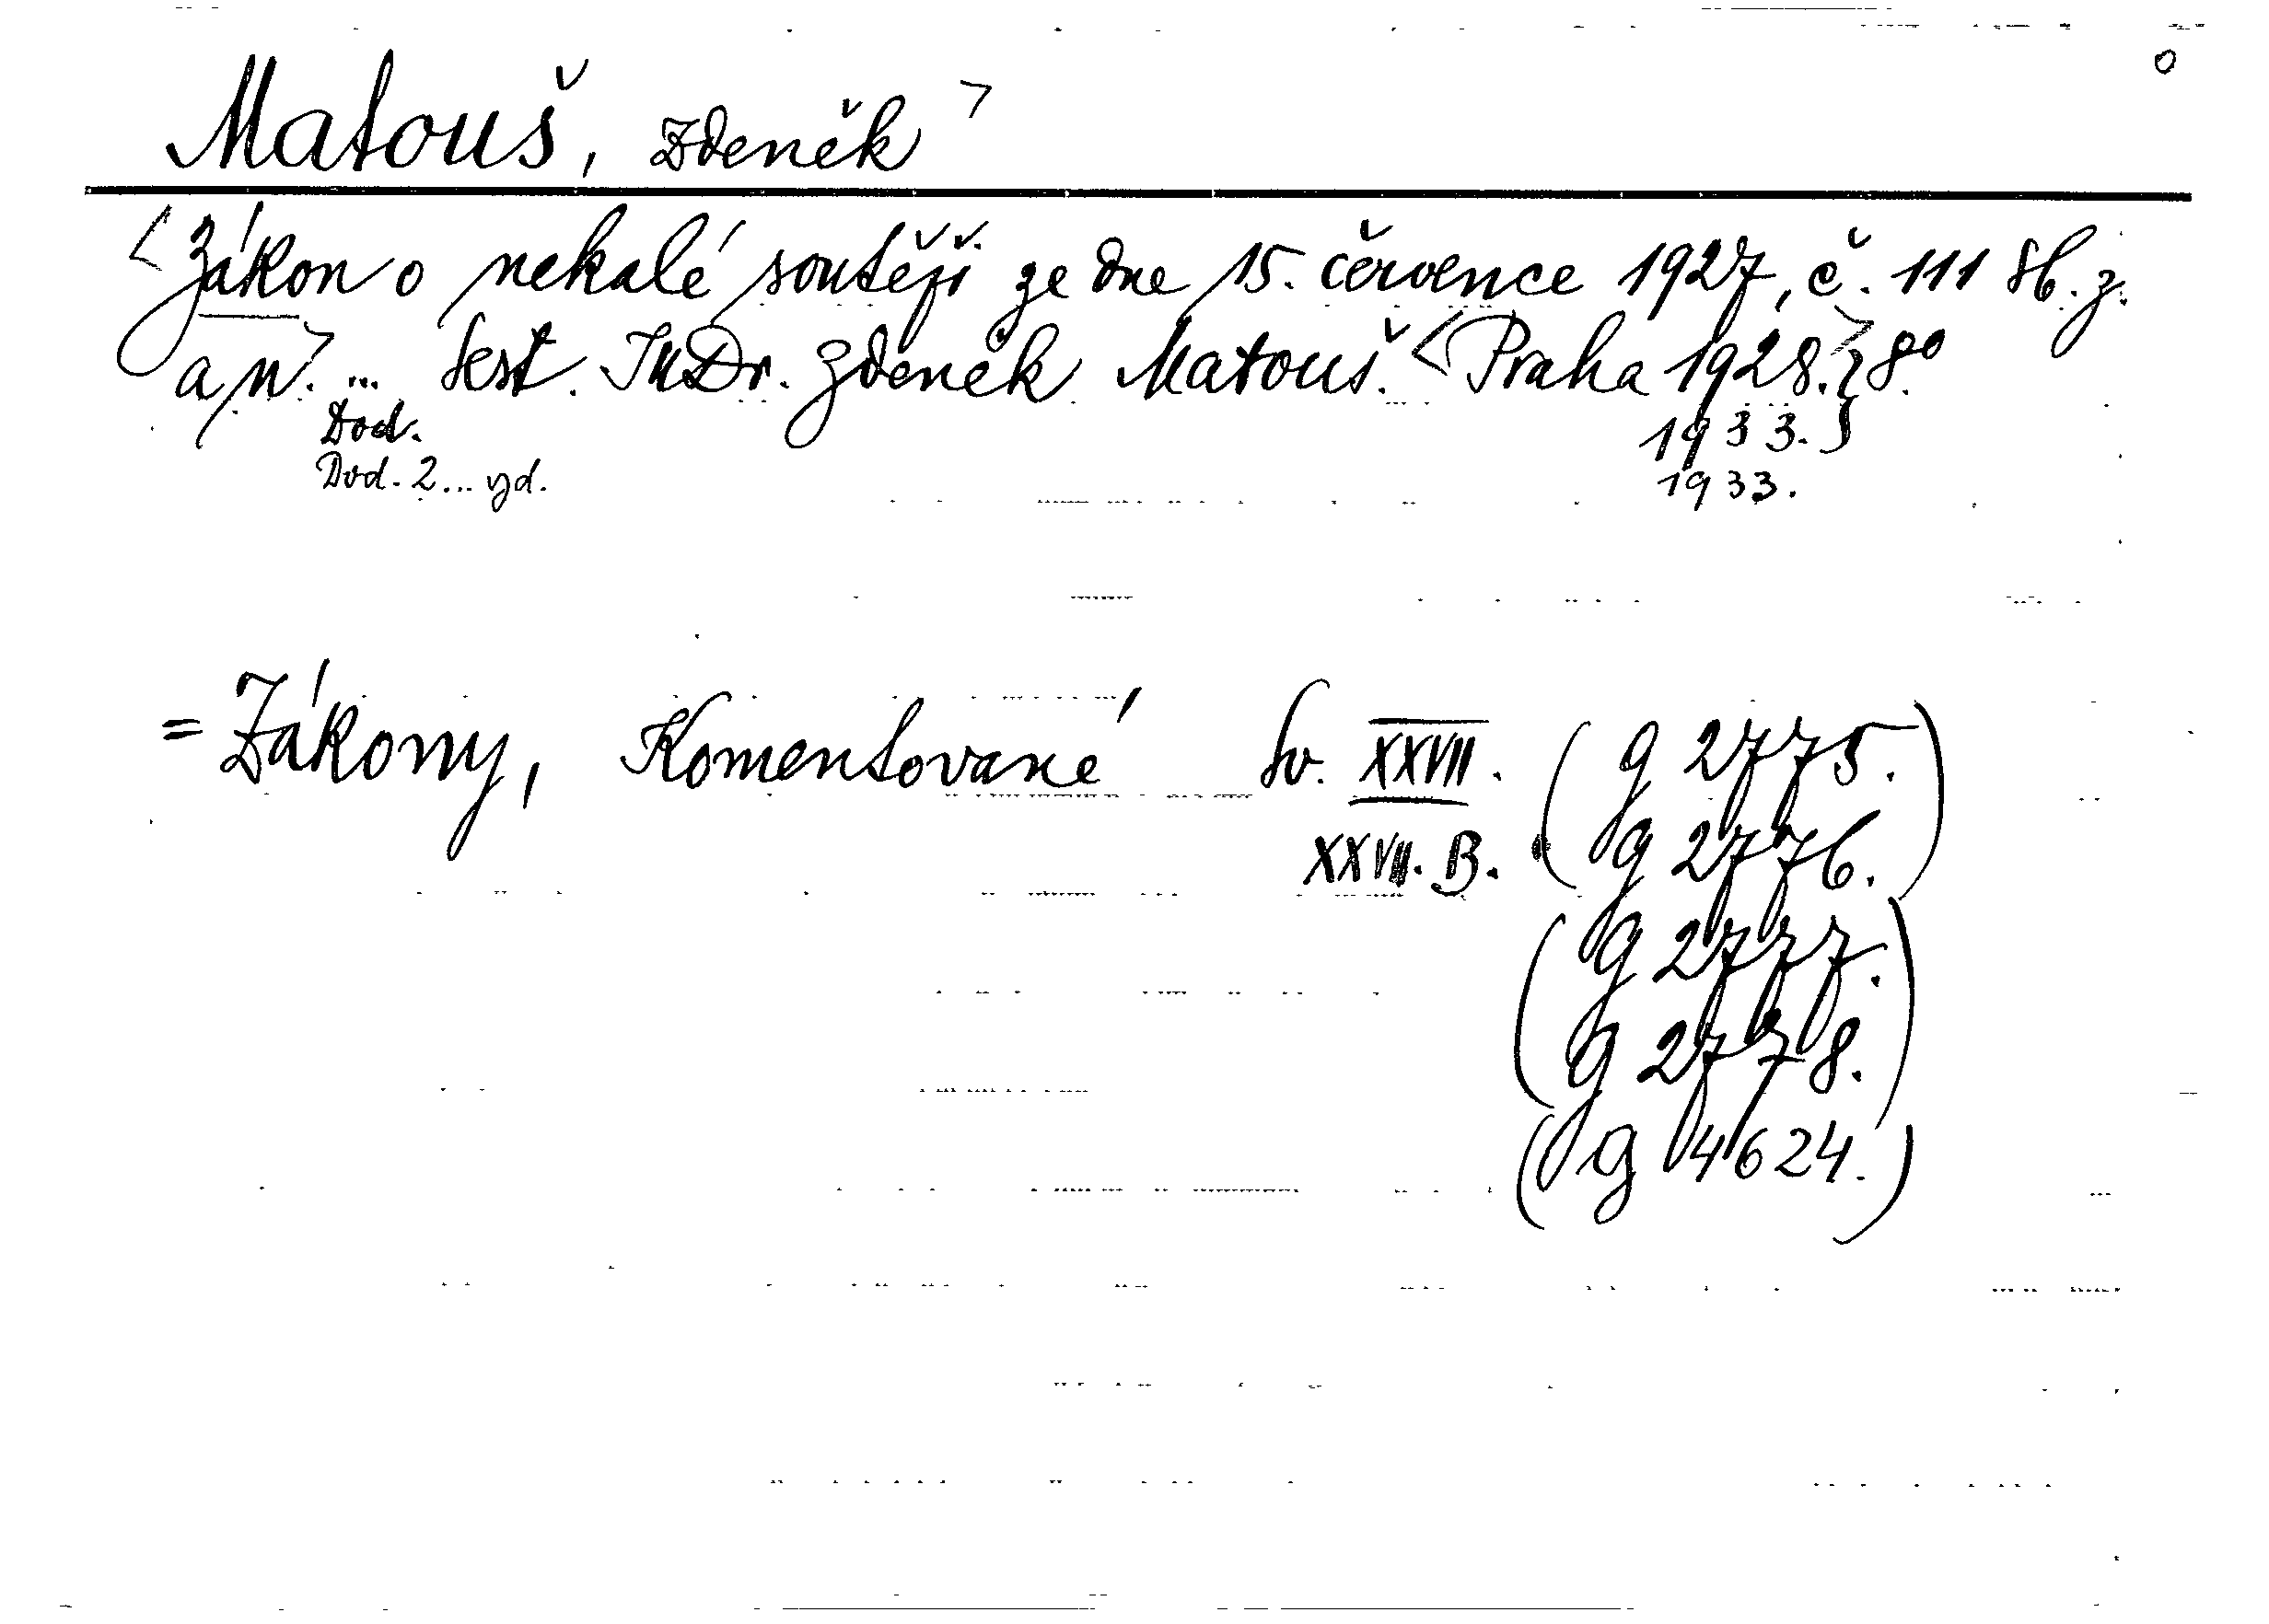 o
Matouš, Zdeněk >
< Zákon o nekalé soutěži ze dne 15. července 1927, č. 111 Sb. z.
a n. > ... Sest. JUDr. Zdeněk Matouš. < Praha 1928. > } 8º
Dod. 1933. }
Dod. 2 ... vyd. 1933.
= Zákony, Komentované Sv. XXVII. ( g 2775.
XXVII. B. g 2776. )
( g 2777.
g 2778. )
( g 4624. )